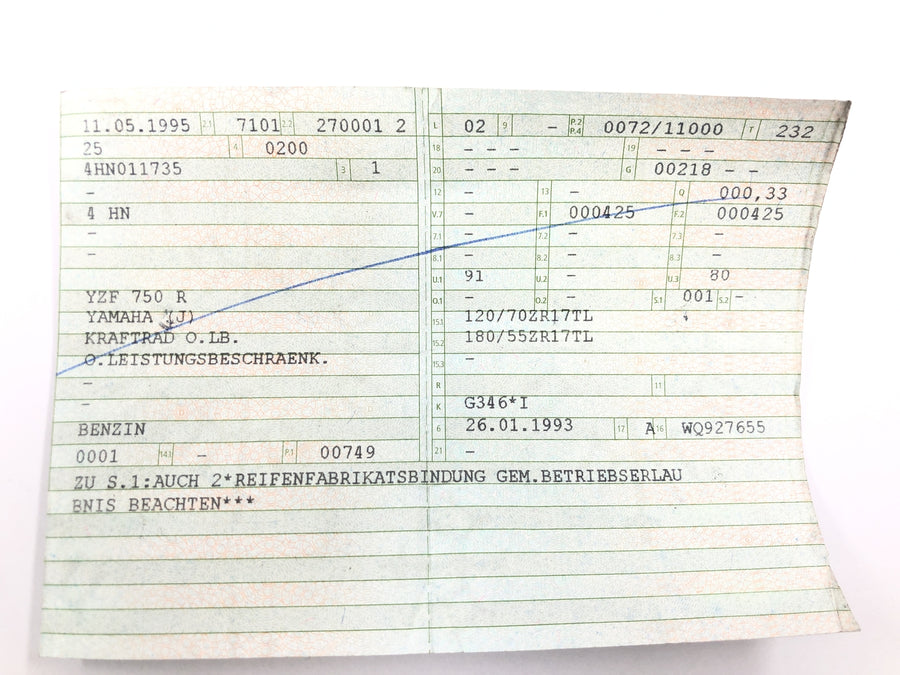 11.05.1995 2.1 7101 2.2 270001 2 L 02 9 – P.2 P.4 0072/11000 T 232
25 4 0200 18 – – – 19 – – –
4HN011735 3 1 20 – – – G 00218 – –
– 12 – 13 – Q 000,33
4 HN V.7 – F.1 000425 F.2 000425
– 7.1 – 7.2 – 7.3 –
– 8.1 – 8.2 – 8.3 –
U.1 91 U.2 – U.3 80
YZF 750 R O.1 – O.2 – S.1 001 S.2 –
YAMAHA (J) 15.1 120/70ZR17TL
KRAFTRAD O.LB. 15.2 180/55ZR17TL
O.LEISTUNGSBESCHRAENK. 15.3 –
– R 11
– K G346*I
BENZIN 6 26.01.1993 17 A 16 WQ927655
0001 14.1 – P.1 00749 21 –
ZU S.1:AUCH 2*REIFENFABRIKATSBINDUNG GEM.BETRIEBSERLAU
BNIS BEACHTEN***